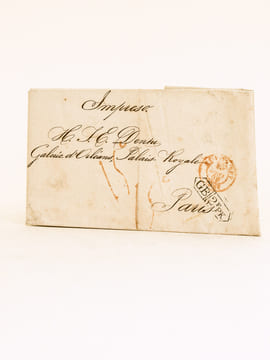 Impreso.
H. I. E. Dentu
Galerie d'Orléans, Palais Royale
Paris